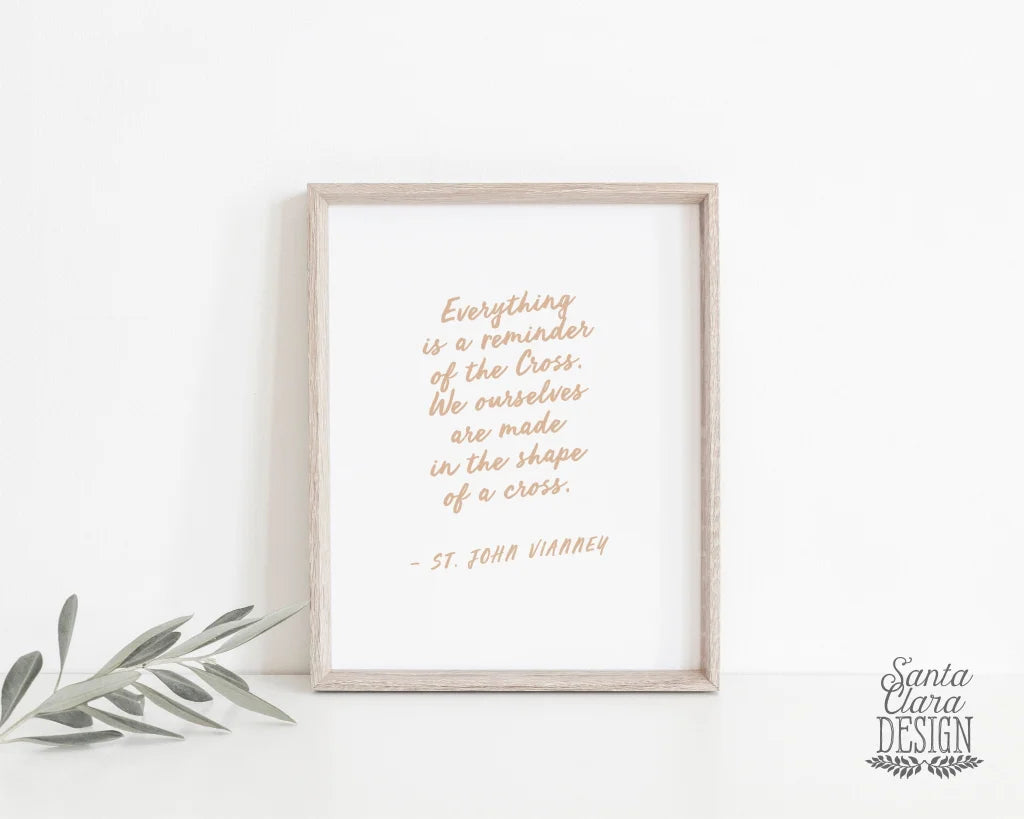 Everything
is a reminder
of the Cross.
We ourselves
are made
in the shape
of a cross.
- ST. JOHN VIANNEY
Santa
Clara
DESIGN